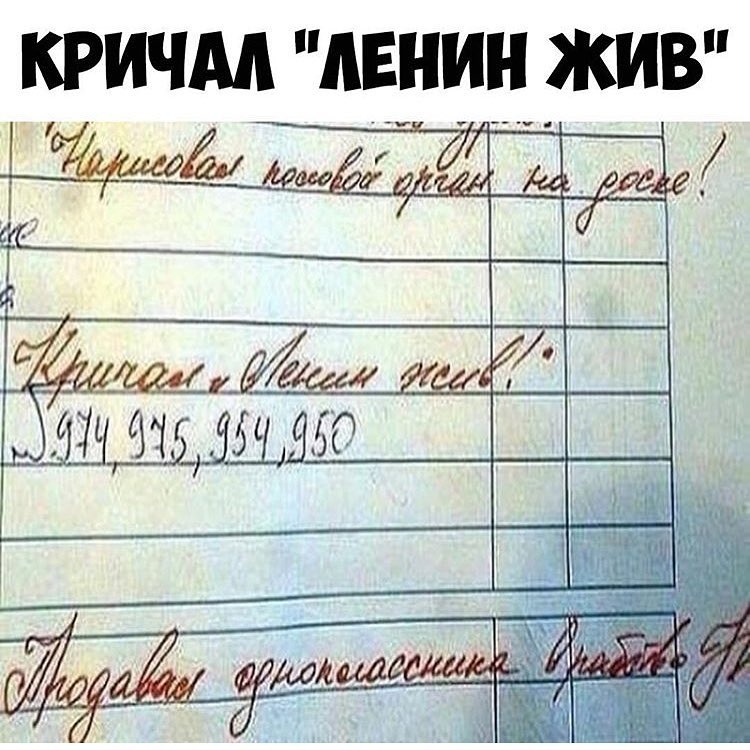 КРИЧАЛ "ЛЕНИН ЖИВ"
Нарисовал половой орган на доске!
Кричал „Ленин жив!"
№974, 975, 954, 950
Продавал одноклассника в рабство